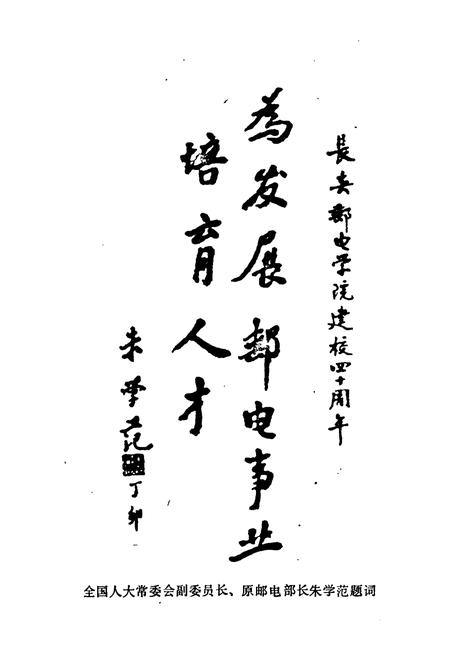 長春郵电学院建校四十周年
為发展郵电事业
培育人才
朱学范
丁卯
全国人大常委会副委员长、原邮电部长朱学范题词